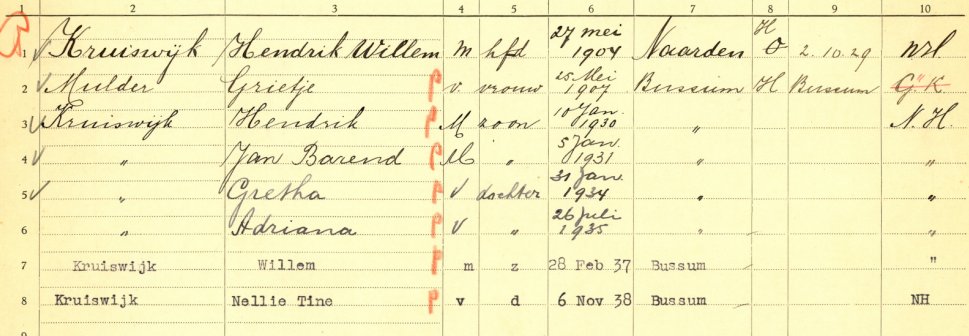 1 2 3 4 5 6 7 8 9 10
1 Kruiswijk Hendrik Willem m hfd 27 mei 1904 Naarden H O 2.10.29 N.H.
2 Mulder Grietje P v. vrouw 25 Mei 1907 Bussum H Bussum G K
3 Kruiswijk Hendrik P M zoon 10 Jan. 1930 " N.H.
4 " Jan Barend P M " 5 Jan. 1931 " "
5 " Gretha P v dochter 31 Jan. 1934 " "
6 " Adriana P v " 26 Juli 1935 " "
7 Kruiswijk Willem P m z 28 Feb 37 Bussum "
8 Kruiswijk Nellie Tine P v d 6 Nov 38 Bussum NH